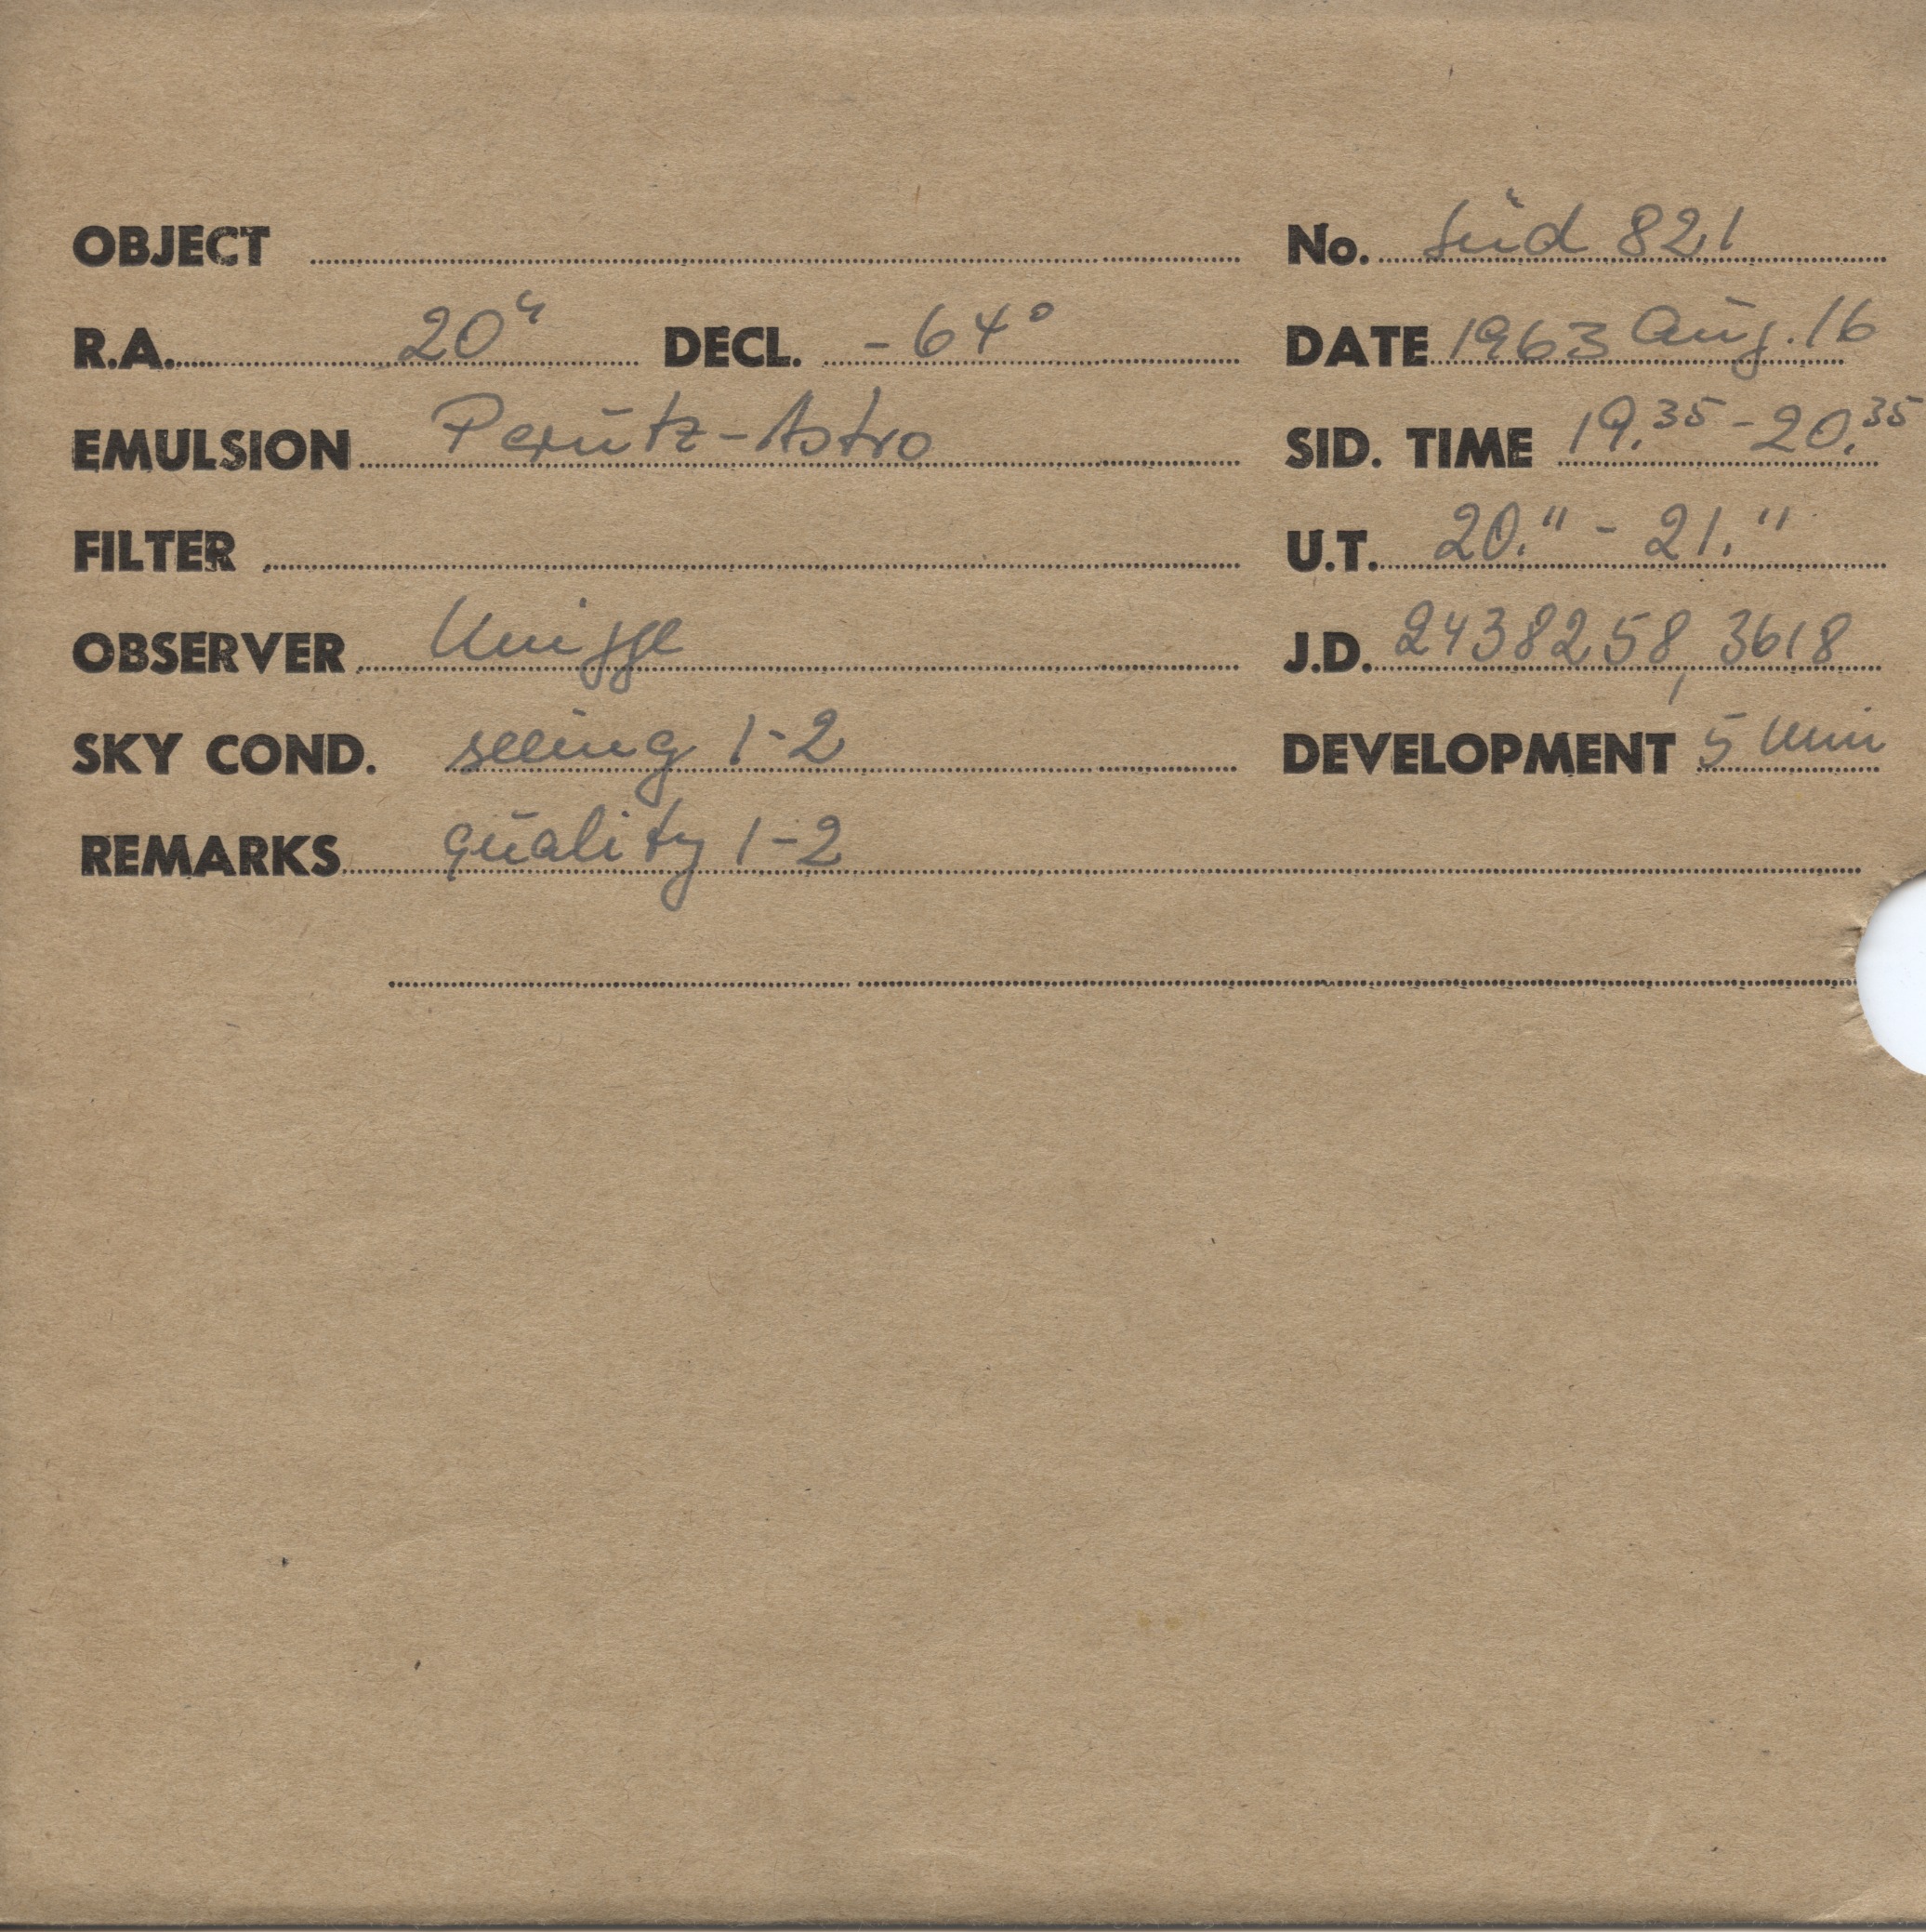 OBJECT No. Süd 821
R.A. 20ʰ DECL. -64° DATE 1963 Aug. 16
EMULSION Perutz-Astro SID. TIME 19.³⁵ - 20.³⁵
FILTER U.T. 20.¹¹ - 21.¹¹
OBSERVER Knigge J.D. 2438258,3618
SKY COND. seeing 1-2 DEVELOPMENT 5 min
REMARKS quality 1-2